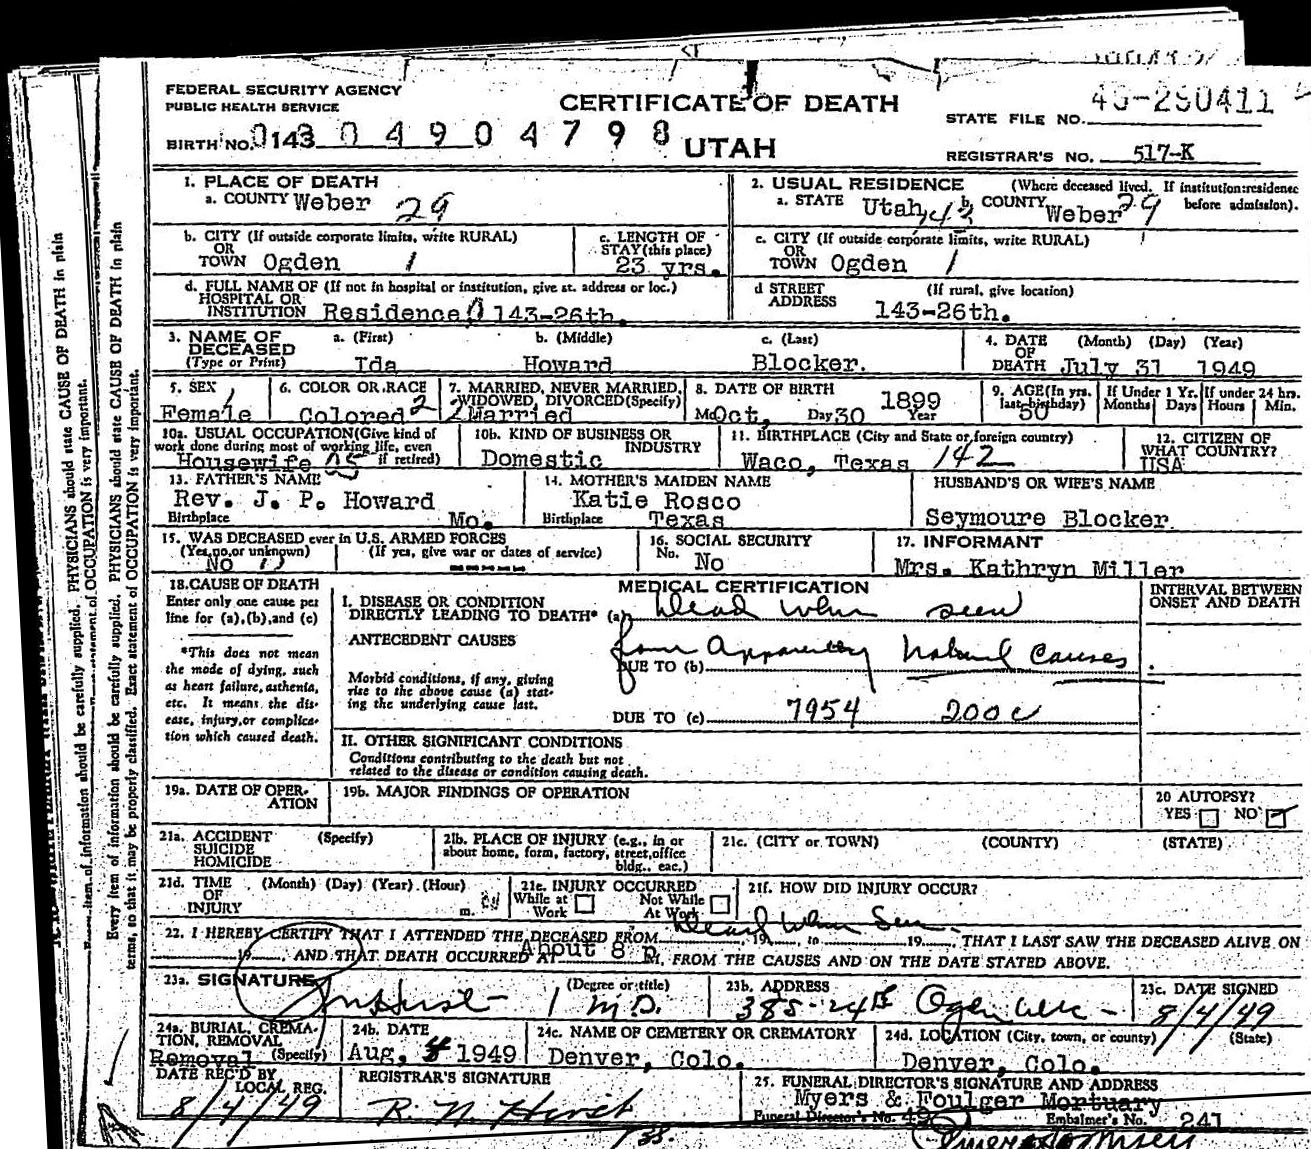 FEDERAL SECURITY AGENCY
PUBLIC HEALTH SERVICE
CERTIFICATE OF DEATH
STATE FILE NO. 49-290411
BIRTH NO. 0143 0 4 9 0 4 7 9 8
UTAH
REGISTRAR'S NO. 517-K
1. PLACE OF DEATH
a. COUNTY Weber 29
2. USUAL RESIDENCE (Where deceased lived. If institution:residence before admission).
a. STATE Utah 43 b. COUNTY Weber 29
b. CITY (If outside corporate limits, write RURAL)
OR
TOWN Ogden 1
c. LENGTH OF
STAY (this place)
23 yrs.
c. CITY (If outside corporate limits, write RURAL)
OR
TOWN Ogden 1
d. FULL NAME OF (If not in hospital or institution, give st. address or loc.)
HOSPITAL OR
INSTITUTION Residence 0 143-26th.
d STREET (If rural, give location)
ADDRESS 143-26th.
3. NAME OF DECEASED (Type or Print)
a. (First) b. (Middle) c. (Last)
Ida Howard Blocker.
4. DATE OF DEATH (Month) (Day) (Year)
July 31 1949
5. SEX 1
Female
6. COLOR OR RACE
Colored 2
7. MARRIED, NEVER MARRIED, WIDOWED, DIVORCED (Specify)
2 Married
8. DATE OF BIRTH 1899
Mo Oct, Day 30 Year
9. AGE (In yrs. last birthday)
50
If Under 1 Yr. Months Days
If under 24 hrs. Hours Min.
10a. USUAL OCCUPATION (Give kind of work done during most of working life, even if retired)
Housewife
10b. KIND OF BUSINESS OR INDUSTRY
Domestic
11. BIRTHPLACE (City and State or foreign country)
Waco, Texas 142
12. CITIZEN OF WHAT COUNTRY?
USA
13. FATHER'S NAME
Rev. J. P. Howard
Birthplace Mo.
14. MOTHER'S MAIDEN NAME
Katie Rosco
Birthplace Texas
HUSBAND'S OR WIFE'S NAME
Seymoure Blocker
15. WAS DECEASED ever in U.S. ARMED FORCES
(Yes,no,or unknown) (If yes, give war or dates of service)
No
16. SOCIAL SECURITY
No. No
17. INFORMANT
Mrs. Kathryn Miller
18. CAUSE OF DEATH
Enter only one cause per line for (a),(b),and (c)
*This does not mean the mode of dying, such as heart failure, asthenia, etc. It means the disease, injury, or complication which caused death.
MEDICAL CERTIFICATION
INTERVAL BETWEEN ONSET AND DEATH
I. DISEASE OR CONDITION
DIRECTLY LEADING TO DEATH* (a) Dead when seen
ANTECEDENT CAUSES from Apparently Natural Causes
DUE TO (b)
Morbid conditions, if any, giving rise to the above cause (a) stating the underlying cause last.
DUE TO (c) 7954 200c
II. OTHER SIGNIFICANT CONDITIONS
Conditions contributing to the death but not related to the disease or condition causing death.
19a. DATE OF OPERATION
19b. MAJOR FINDINGS OF OPERATION
20 AUTOPSY?
YES NO
21a. ACCIDENT SUICIDE HOMICIDE (Specify)
21b. PLACE OF INJURY (e.g., in or about home, form, factory, street, office bldg., eac.)
21c. (CITY or TOWN) (COUNTY) (STATE)
21d. TIME OF INJURY (Month) (Day) (Year) (Hour) m.
21e. INJURY OCCURRED
While at Work Not While At Work
21f. HOW DID INJURY OCCUR?
22. I HEREBY CERTIFY THAT I ATTENDED THE DECEASED FROM Dead When Seen, 19, to 19, THAT I LAST SAW THE DECEASED ALIVE ON
19, AND THAT DEATH OCCURRED AT About 8 p M, FROM THE CAUSES AND ON THE DATE STATED ABOVE.
23a. SIGNATURE (Degree or title)
M.D.
23b. ADDRESS
385-24th Ogden Utah
23c. DATE SIGNED
8/4/49
24a. BURIAL, CREMATION, REMOVAL (Specify)
Removal
24b. DATE
Aug. 4 1949
24c. NAME OF CEMETERY OR CREMATORY
Denver, Colo.
24d. LOCATION (City, town, or county) (State)
Denver, Colo.
DATE REC'D BY LOCAL REG.
8/4/49
REGISTRAR'S SIGNATURE
25. FUNERAL DIRECTOR'S SIGNATURE AND ADDRESS
Myers & Foulger Mortuary
Funeral Director's No. 49 Embalmer's No. 241
Every item of information should be carefully supplied. PHYSICIANS should state CAUSE OF DEATH in plain
terms, so that it may be properly classified. Exact statement of OCCUPATION is very important.